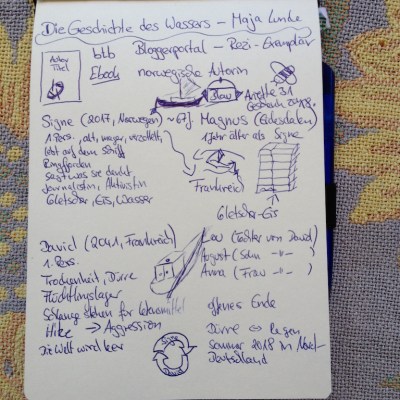 Die Geschichte des Wassers – Maja Lunde
Autor
Titel
btb Bloggerportal – Rezi-Exemplar
Ebook norwegische Autorin
Signe (2017, Norwegen) ~67J. Magnus
1 Jahr älter als Signe
1. Pers., alt, mager,
lebt auf dem Schiff
Ringfjorden
sagt was sie denkt
Journalistin, Aktivistin
Gletscher, Eis, Wasser
Frankreich
Gletscher-Eis
David (2041, Frankreich)
1. Pers.
Trockenheit, Dürre
Flüchtlingslager
Schlange stehen für Lebensmittel
Hitze → Aggression
Die Welt wird leer
Lou (Tochter von David)
August (Sohn –"– )
Anna (Frau –"– )
offenes Ende
Dürre ↔ Regen
Sommer 2018 in Nord-
Deutschland
Signe
David